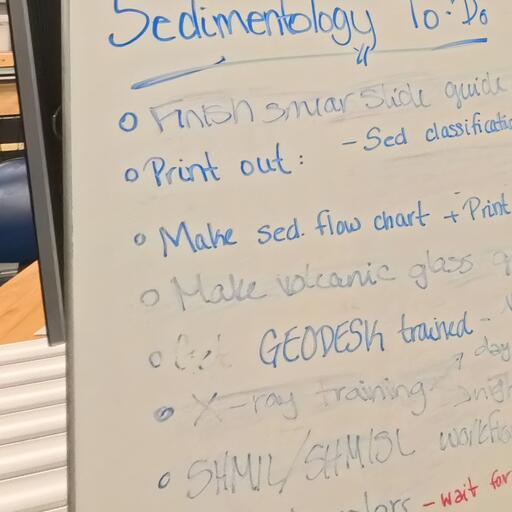 Sedimentology To-Do
o Finish smear slide guide
o Print out: - Sed classificatio
o Make sed. flow chart + Print
o Make volcanic glass
o Get GEODESK trained -
day
o X-ray training
o SHMIL/SHMSL workflo
- wait for